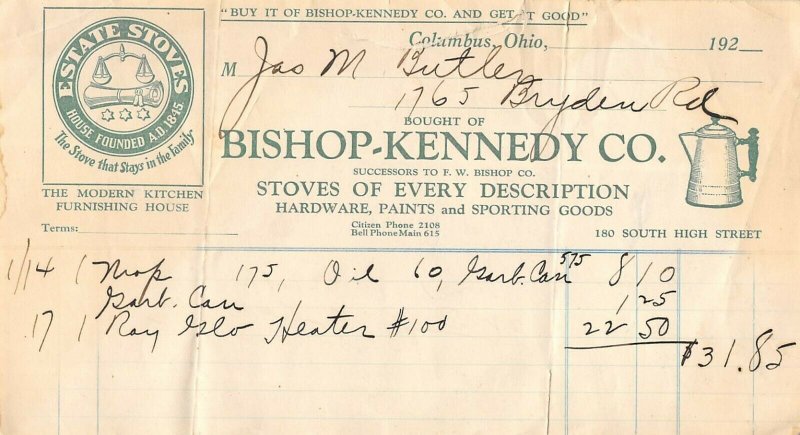 "BUY IT OF BISHOP-KENNEDY CO. AND GET IT GOOD"
ESTATE STOVES
HOUSE FOUNDED A.D. 1845
The Stove that Stays in the Family
THE MODERN KITCHEN
FURNISHING HOUSE
Columbus, Ohio, 192
M Jas M. Butler
1765 Bryden Rd
BOUGHT OF
BISHOP-KENNEDY CO.
SUCCESSORS TO F. W. BISHOP CO.
STOVES OF EVERY DESCRIPTION
HARDWARE, PAINTS and SPORTING GOODS
Terms:
Citizen Phone 2108
Bell Phone Main 615
180 SOUTH HIGH STREET
1/14 1 Mop 175, Oil 60, Garb. Can 575 8 10
Garb. Can 1 25
17 1 Ray Glo Heater #100 22 50
$31.85